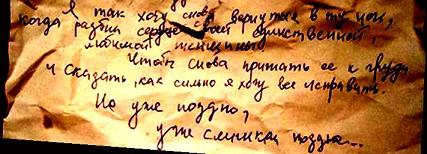 Я так хочу снова вернуться в ту ночь,
когда разбил сердце своей единственной,
любимой женщины.
Чтобы снова прижать её к груди
и сказать, как сильно я хочу всё исправить.
Но уже поздно,
уже слишком поздно...